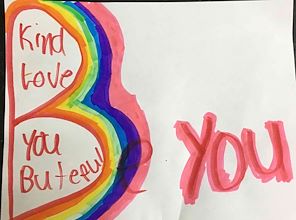 Kind
Love
You
Buteful
Be YOU